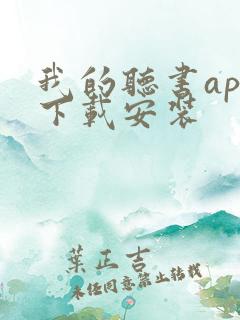 我的聽書ap
下載安裝
葉正吉
未经同意禁止转载